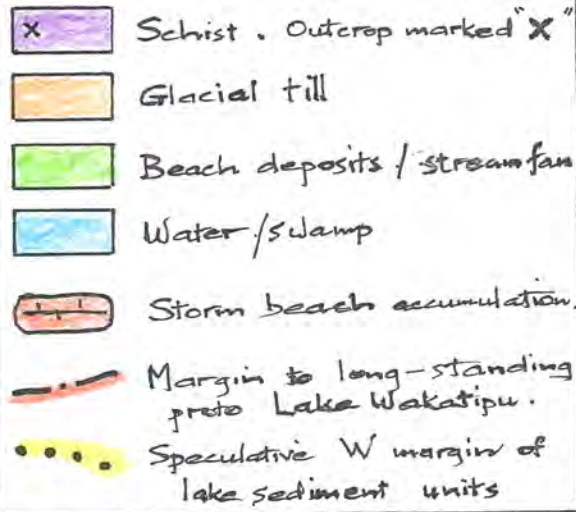 x Schist . Outcrop marked "X"
Glacial till
Beach deposits / stream fan
Water/swamp
Storm beach accumulation.
Margin to long-standing
proto Lake Wakatipu.
Speculative W margin of
lake sediment units